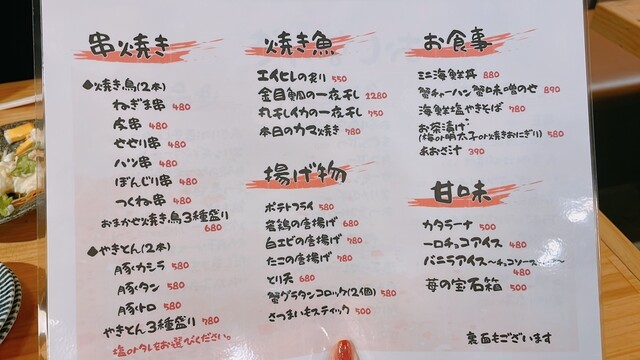 串焼き
●焼き鳥(2本)
ねぎま串 480
皮串 480
せせり串 480
ハツ串 480
ぼんじり串 480
つくね串 480
おまかせ焼き鳥3種盛り
680
●やきとん(2本)
豚カシラ 580
豚タン 580
豚トロ 580
やきとん3種盛り 780
塩orタレをお選びください。
焼き魚
エイヒレの炙り 550
金目鯛の一夜干し 1280
丸干しイカの一夜干し 750
本日のカマ焼き 780
揚げ物
ポテトフライ 580
若鶏の唐揚げ 680
白エビの唐揚げ 780
たこの唐揚げ 780
とり天 680
蟹グラタンコロッケ(2個) 580
さつまいもスティック 500
お食事
ミニ海鮮丼 880
蟹チャーハン蟹味噌のせ 890
海鮮塩やきそば 780
お茶漬け
(梅or明太子or焼きおにぎり) 580
あおさ汁 390
甘味
カタラーナ 500
一口チョコアイス 480
バニラアイス〜チョコソース
480
苺の宝石箱 500
裏面もございます